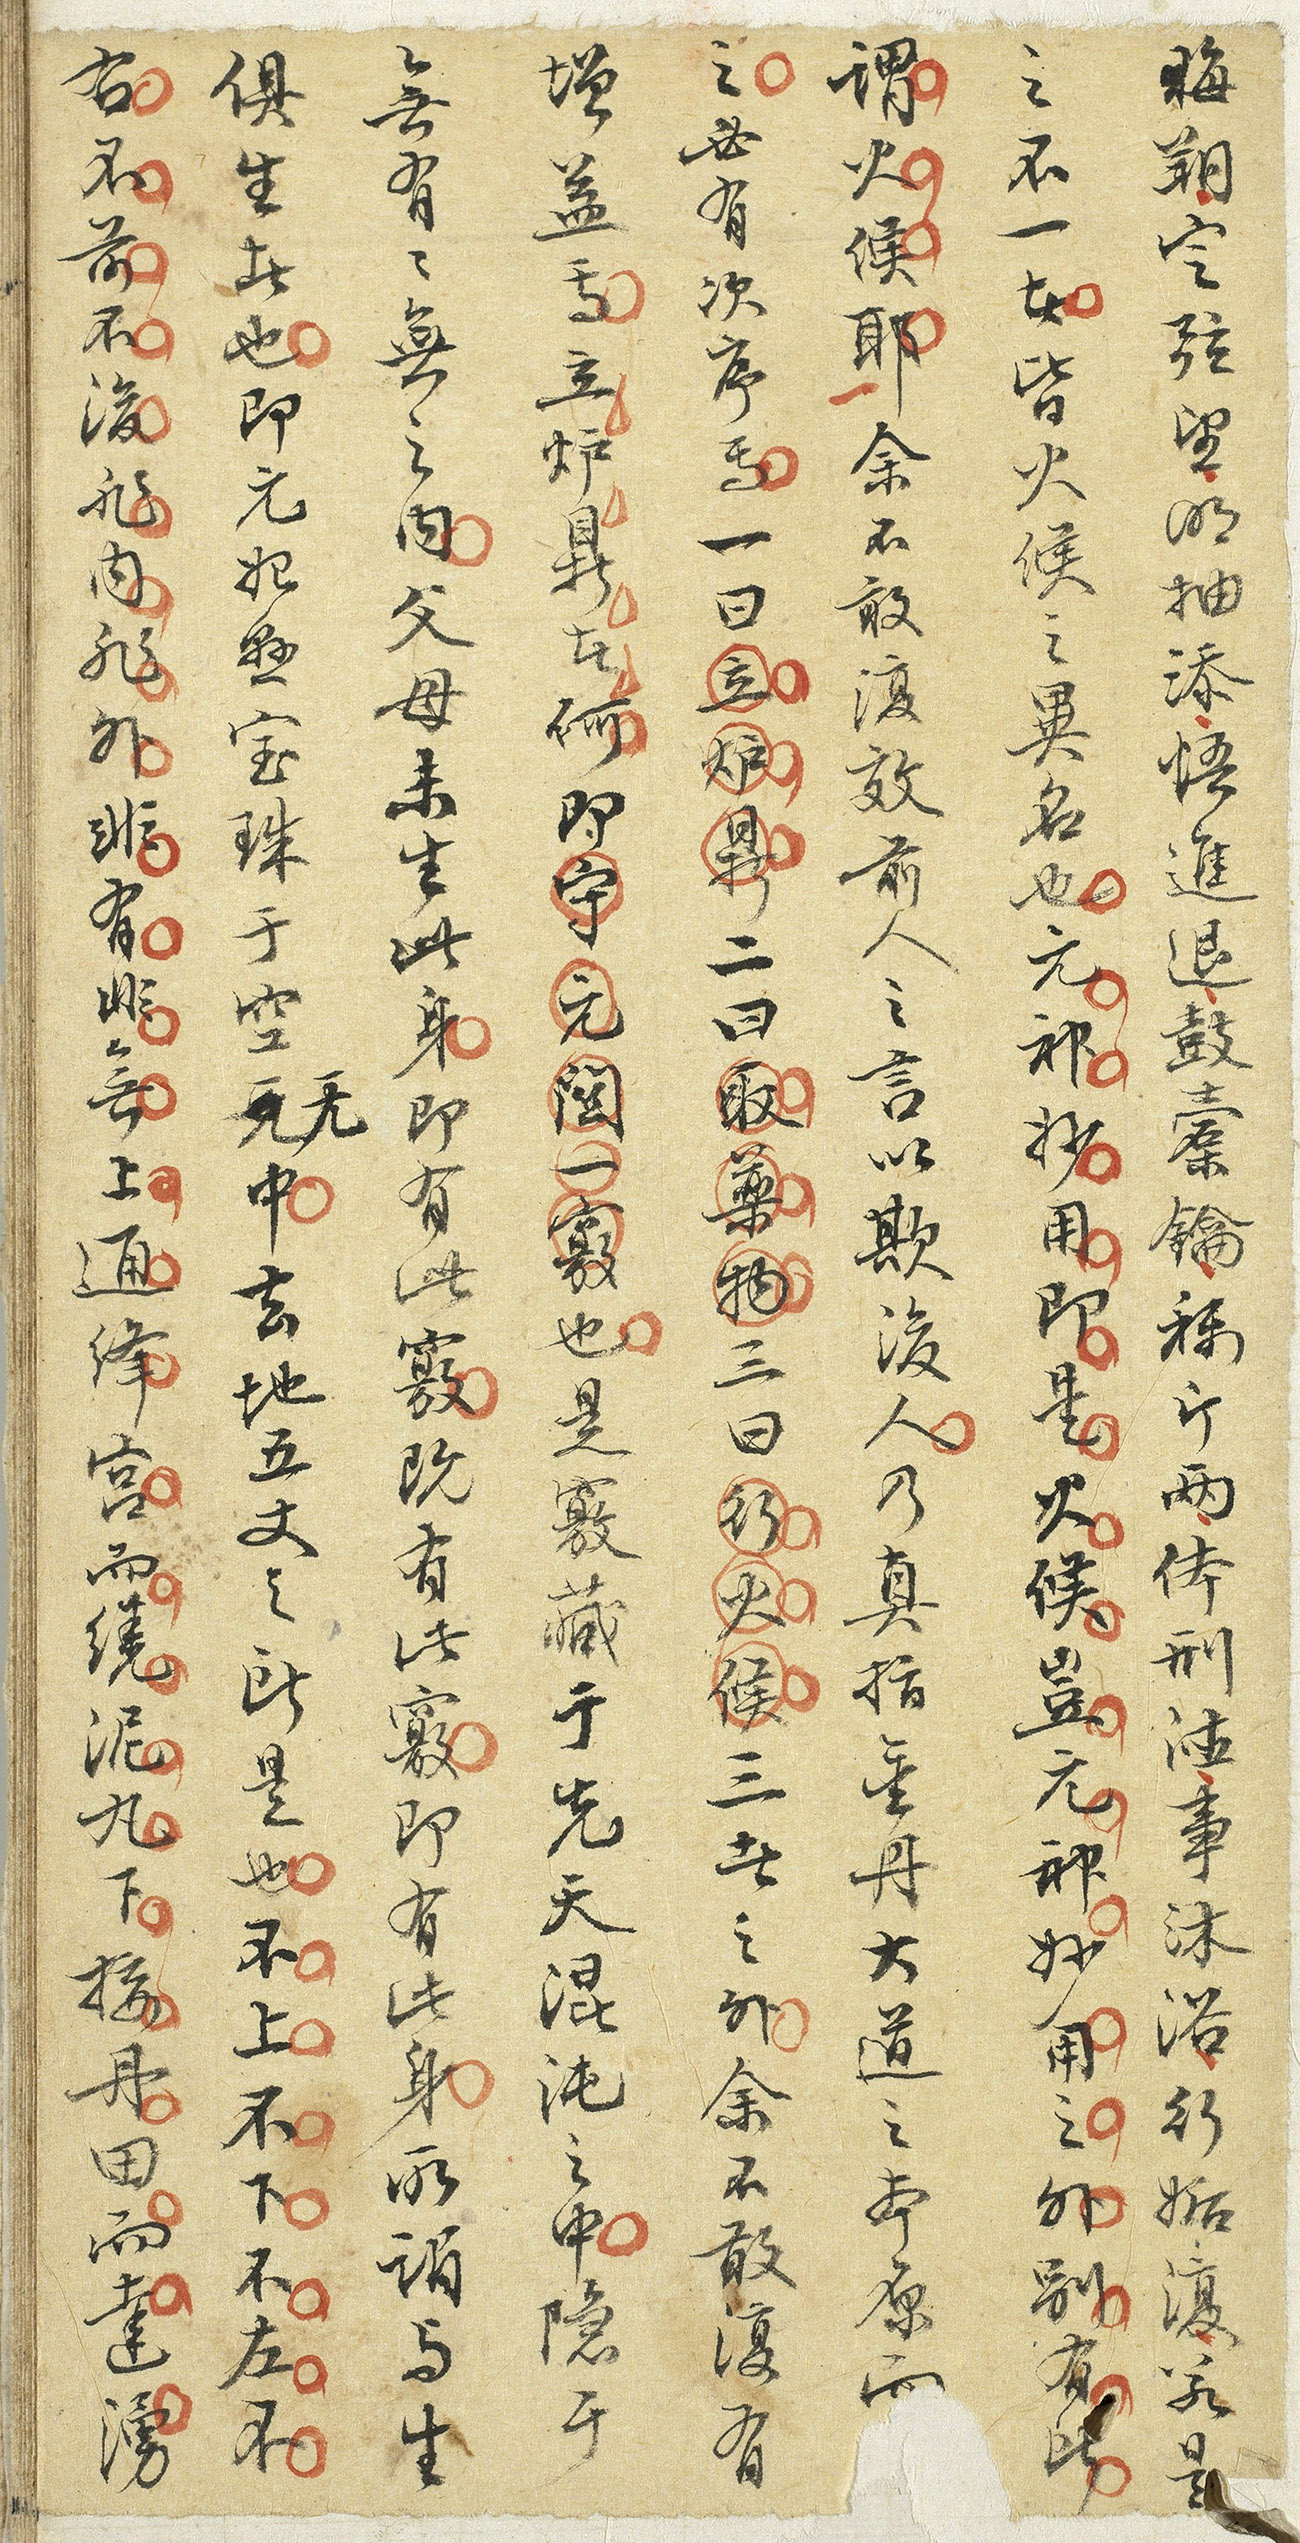 晦朔定弦望明抽添悟進退鼓橐籥稱斤兩体刑德事沐浴行姤復若是
之不一者皆火候之異名也元神妙用即是火候豈元神妙用之外别有所
謂火候耶余不敢復效前人之言以欺後人乃真指金丹大道之本原而
之必有次序焉一曰立炉鼎二曰取藥物三曰行火候三者之外余不敢復有
增益焉立炉鼎者何即守元関一竅也是竅藏于先天混沌之中隐于
无有〻無之内父母未生此身即有此竅既有此竅即有此身所謂与生
俱生者也即元始懸宝珠于空无中去地五丈之所是也不上不下不左不
右不前不後非内非外非有非无上通絳宮而繞泥丸下接丹田而達湧